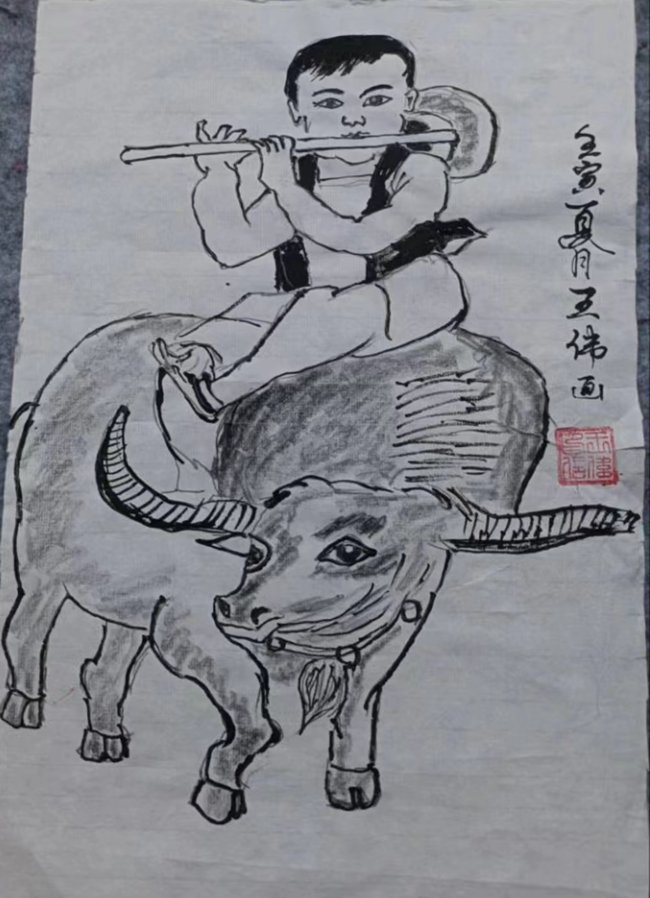 壬寅夏月王伟画